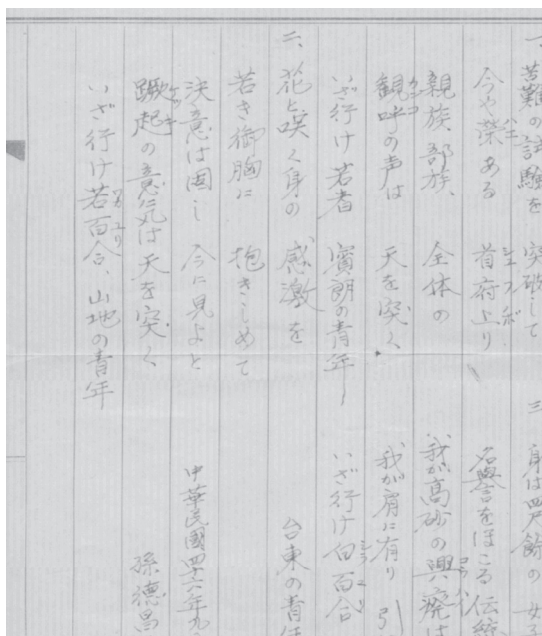 一、苦難の試験を 突破して
今や栄ある 首府上り
親族、部族、 全体の
観呼の声は 天を突く
いざ行け若者 賓朗の青年
二、花と咲く身の 感激を
若き御胸に 抱きしめて
決意は固し 今に見よと
蹶起の意気は 天を突く
いざ行け若百合、山地の青年
三 身は四尺餘の
名誉をほこる 伝統
我が高砂の興廃は
我が肩に有り 引
いざ行け白百合
台東の青年
中華民國四六年九
孫德昌